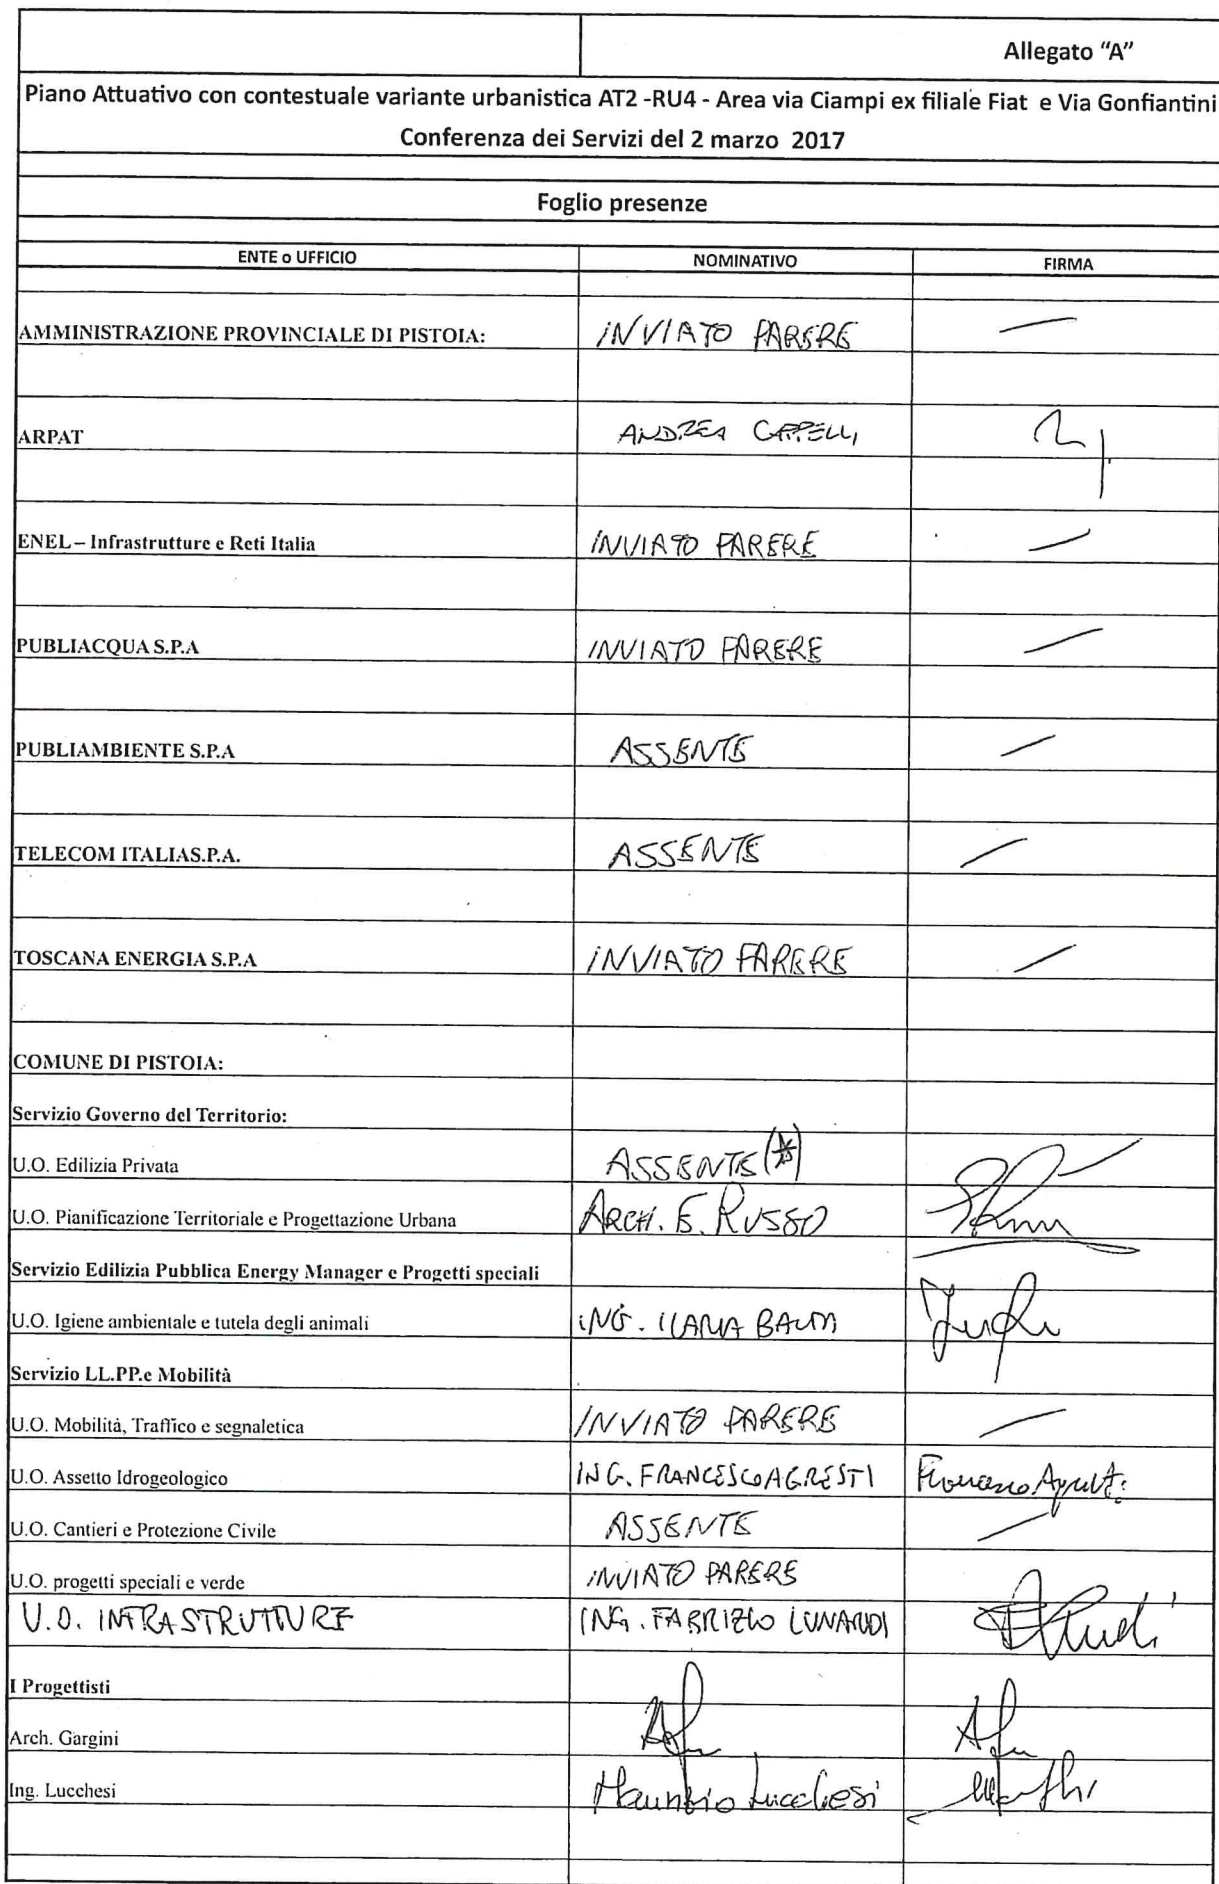 Allegato “A”
Piano Attuativo con contestuale variante urbanistica AT2 -RU4 - Area via Ciampi ex filiale Fiat e Via Gonfiantini
Conferenza dei Servizi del 2 marzo 2017
Foglio presenze
ENTE o UFFICIO NOMINATIVO FIRMA
AMMINISTRAZIONE PROVINCIALE DI PISTOIA: INVIATO PARERE —
ARPAT ANDREA CAPPELLI
ENEL – Infrastrutture e Reti Italia INVIATO PARERE —
PUBLIACQUA S.P.A INVIATO PARERE —
PUBLIAMBIENTE S.P.A ASSENTE —
TELECOM ITALIAS.P.A. ASSENTE —
TOSCANA ENERGIA S.P.A INVIATO PARERE —
COMUNE DI PISTOIA:
Servizio Governo del Territorio:
U.O. Edilizia Privata ASSENTE (*) —
U.O. Pianificazione Territoriale e Progettazione Urbana ARCH. E. RUSSO
Servizio Edilizia Pubblica Energy Manager e Progetti speciali
U.O. Igiene ambientale e tutela degli animali ING. ILARIA
Servizio LL.PP.e Mobilità
U.O. Mobilità, Traffico e segnaletica INVIATO PARERE —
U.O. Assetto Idrogeologico ING. FRANCESCO AGRESTI Francesco Agresti
U.O. Cantieri e Protezione Civile ASSENTE —
U.O. progetti speciali e verde INVIATO PARERE
U.O. INFRASTRUTTURE ING. FABRIZIO LUNARDI
I Progettisti
Arch. Gargini
Ing. Lucchesi Maurizio Lucchesi